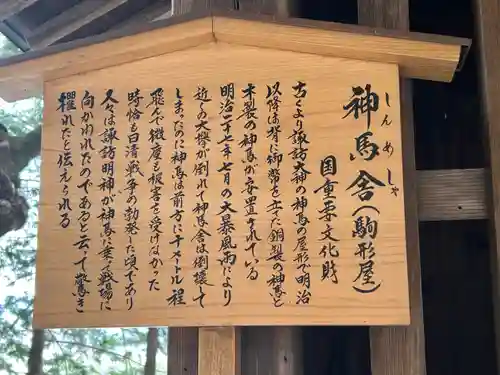 しんめしゃ
神馬舎(駒形屋)
国重要文化財
古くより諏訪大神の神馬の屋形で明治
以降は背に御幣を立てた銅製の神馬と
木製の神馬が安置されている
明治二十七年七月の大暴風雨により
近くの大欅が倒れ神馬舎は倒壊して
しまったのに神馬は前方に十メートル程
飛んで微塵も被害を受けなかった
時恰も日清戦争の勃発した頃であり
人々は諏訪明神が神馬に乗って戦場に
向かわれたのであると云って驚き
懼れたと伝えられる